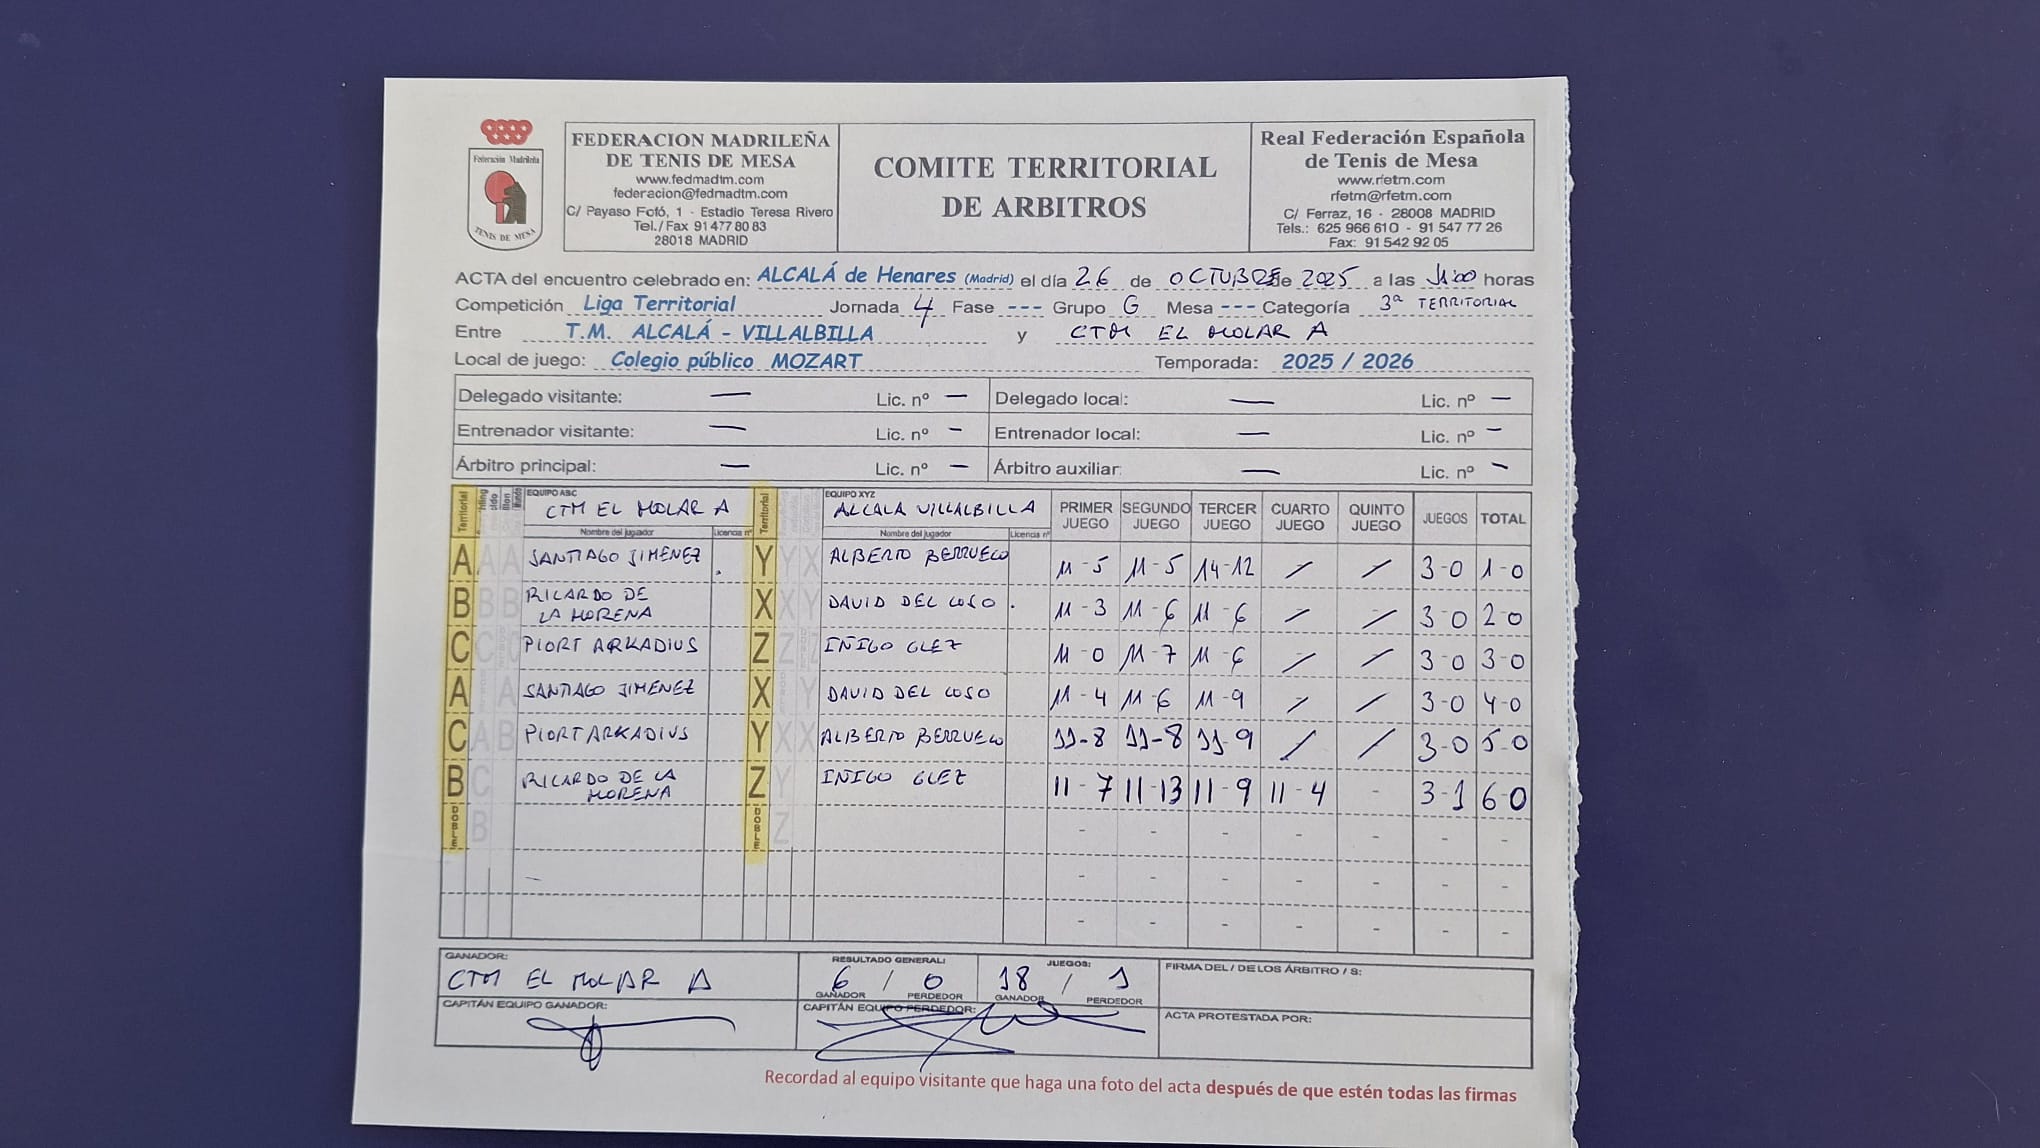 Federación Madrileña
TENIS DE MESA
FEDERACION MADRILEÑA
DE TENIS DE MESA
www.fedmadtm.com
federacion@fedmadtm.com
C/ Payaso Fofó, 1 - Estadio Teresa Rivero
Tel./ Fax 91 477 80 83
28018 MADRID
COMITE TERRITORIAL
DE ARBITROS
Real Federación Española
de Tenis de Mesa
www.rfetm.com
rfetm@rfetm.com
C/ Ferraz, 16 - 28008 MADRID
Tels.: 625 966 610 - 91 547 77 26
Fax: 91 542 92 05
ACTA del encuentro celebrado en: ALCALÁ de Henares (Madrid) el día 26 de OCTUBRE de 2025 a las 11:00 horas
Competición Liga Territorial Jornada 4 Fase --- Grupo G Mesa --- Categoría 3ª TERRITORIAL
Entre T.M. ALCALÁ - VILLALBILLA y CTM EL MOLAR A
Local de juego: Colegio público MOZART Temporada: 2025 / 2026
Delegado visitante: — Lic. nº — Delegado local: — Lic. nº —
Entrenador visitante: — Lic. nº — Entrenador local: — Lic. nº —
Árbitro principal: — Lic. nº — Árbitro auxiliar: — Lic. nº —
Territorial EQUIPO ABC CTM EL MOLAR A Territorial EQUIPO XYZ ALCALA VILLALBILLA PRIMER JUEGO SEGUNDO JUEGO TERCER JUEGO CUARTO JUEGO QUINTO JUEGO JUEGOS TOTAL
Nombre del jugador Licencia nº Nombre del jugador Licencia nº
A A A SANTIAGO JIMENEZ . Y Y X ALBERTO BERRUECO 11-5 11-5 14-12 / / 3-0 1-0
B B B RICARDO DE LA MORENA X X Y DAVID DEL COSO . 11-3 11-6 11-6 / / 3-0 2-0
C C C PIORT ARKADIUS Z Z Z IÑIGO GLEZ 11-0 11-7 11-6 / / 3-0 3-0
A A SANTIAGO JIMENEZ X Y DAVID DEL COSO 11-4 11-6 11-9 / / 3-0 4-0
C A B PIORT ARKADIUS Y X X ALBERTO BERRUECO 11-8 11-8 11-9 / / 3-0 5-0
B C RICARDO DE LA MORENA Z Y IÑIGO GLEZ 11-7 11-13 11-9 11-4 - 3-1 6-0
DOBLE B DOBLE Z - - - - - - -
- - - - - - -
- - - - - - -
GANADOR: CTM EL MOLAR A
RESULTADO GENERAL: 6 / 0
GANADOR PERDEDOR
JUEGOS: 18 / 1
GANADOR PERDEDOR
FIRMA DEL / DE LOS ÁRBITRO / S:
CAPITÁN EQUIPO GANADOR:
CAPITÁN EQUIPO PERDEDOR:
ACTA PROTESTADA POR:
Recordad al equipo visitante que haga una foto del acta después de que estén todas las firmas